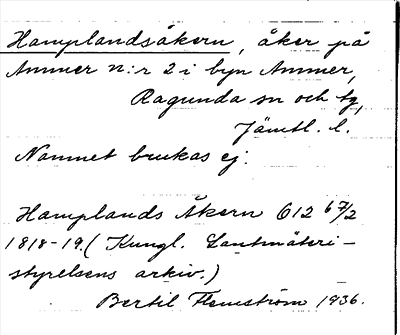 Hamplandsåkern, åker på
Ammer n:r 2 i byn Ammer,
Ragunda sn och tg,
Jämtl. l.
Namnet brukas ej.
Hamplands Åkern 612 67/2
1818-19. (Kungl. Lantmäteri-
styrelsens arkiv.)
Bertil Flemström 1936.